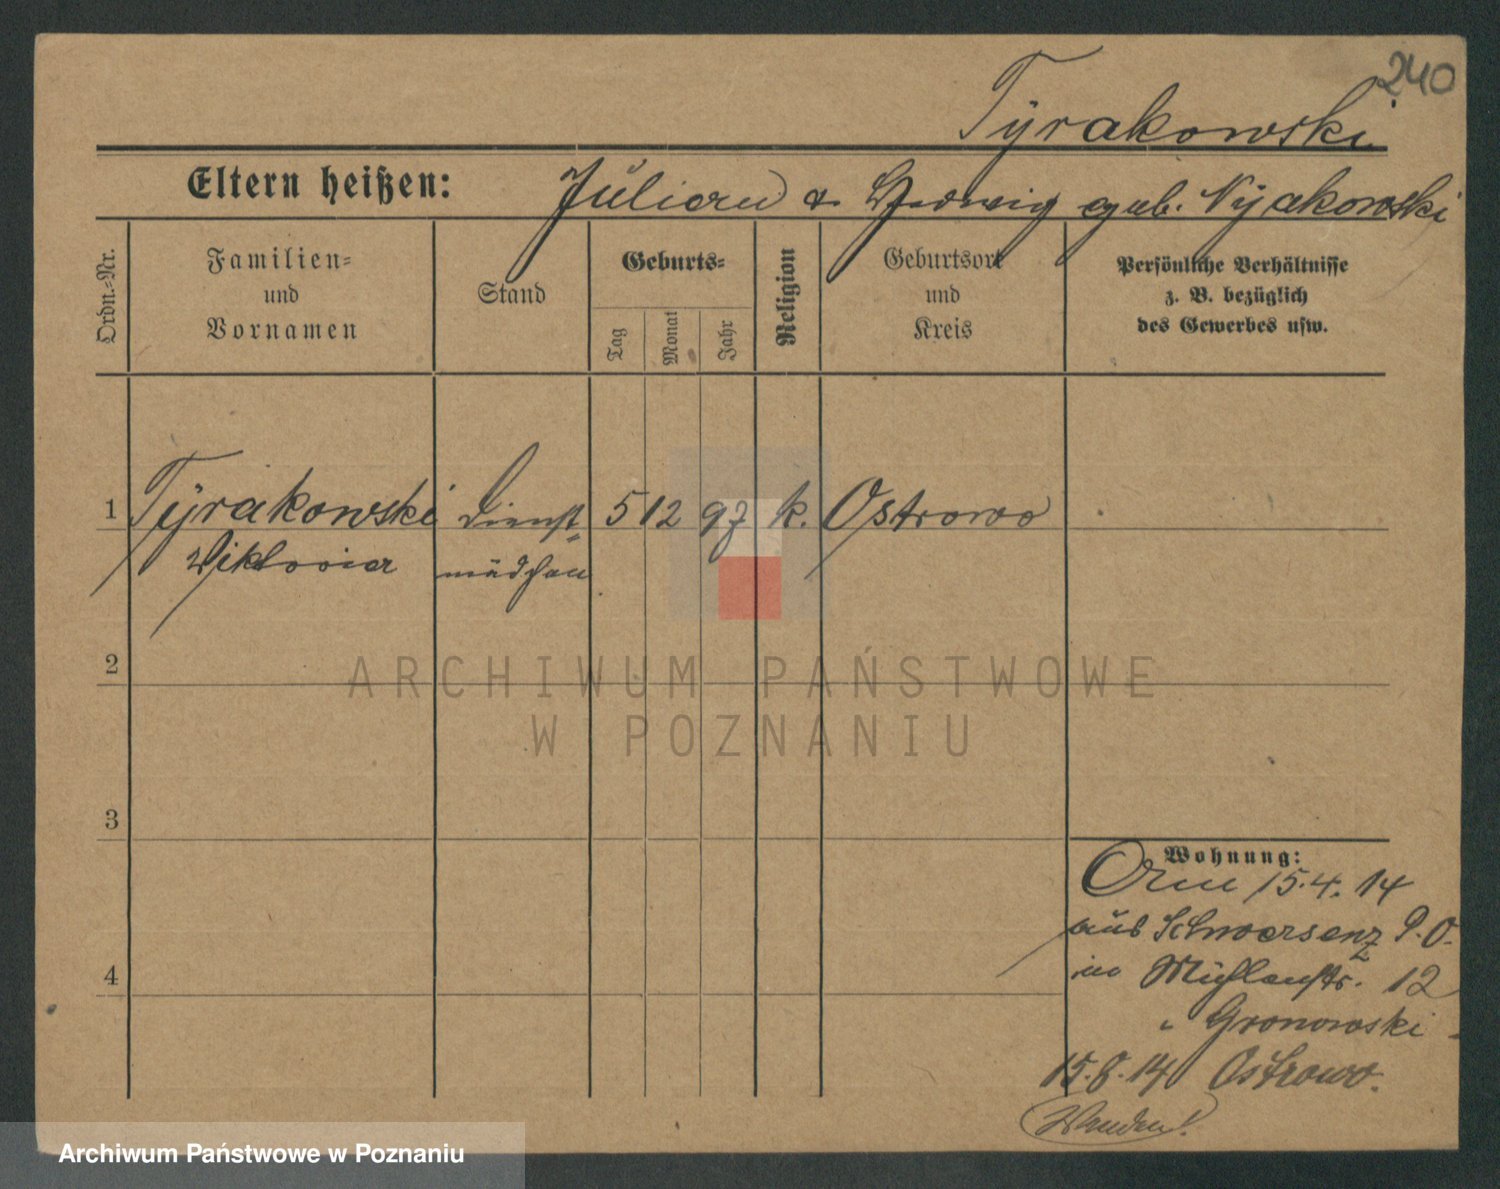 240
Tÿrakowski
Eltern heißen: Julian & Hedwig geb. Nyakowski
Ordn.-Nr.
Familien-
und
Vornamen
Stand
Geburts-
Tag
Monat
Jahr
Religion
Geburtsort
und
Kreis
Persönliche Verhältnisse
z. B. bezüglich
des Gewerbes usw.
1 Tÿrakowski Dienst- 5 12 97 k. Ostrowo
Viktoria mädchen
2
ARCHIWUM PAŃSTWOWE
W POZNANIU
3
Wohnung:
15.4.14
aus Schwersenz P.O.
4
in Mühlenstr. 12
" Gronowski
15.8.14 Ostrowo.
Wenden!
Archiwum Państwowe w Poznaniu